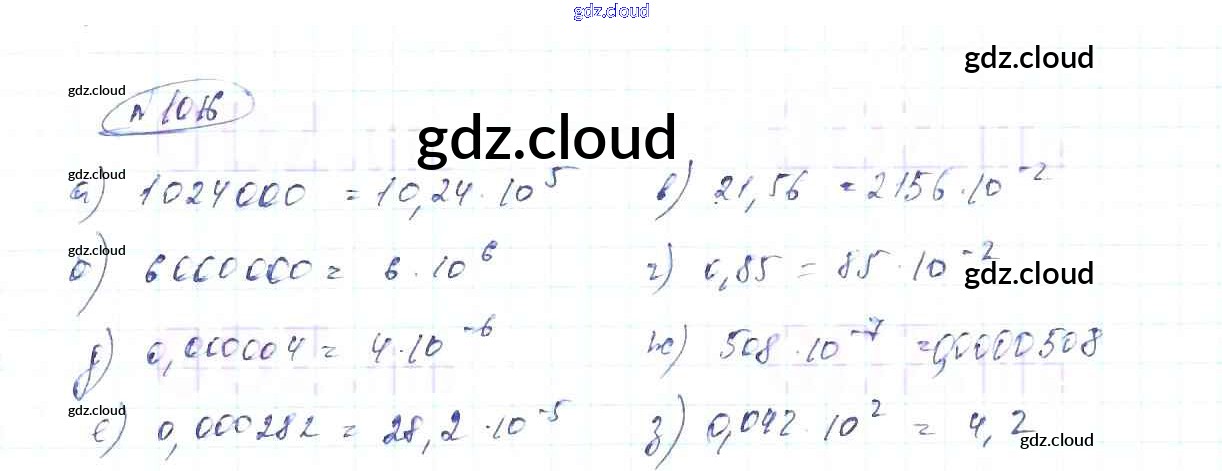 gdz.cloud
gdz.cloud
gdz.cloud
№ 1016
gdz.cloud
gdz.cloud
а) 1024000 = 10,24 · 10^5 в) 21,56 = 2156 · 10^-2
gdz.cloud
б) 6000000 = 6 · 10^6 г) 0,85 = 85 · 10^-2
gdz.cloud
д) 0,000004 = 4 · 10^-6 ж) 508 · 10^-7 = 0,0000508
gdz.cloud
е) 0,000282 = 28,2 · 10^-5 з) 0,042 · 10^2 = 4,2
gdz.cloud